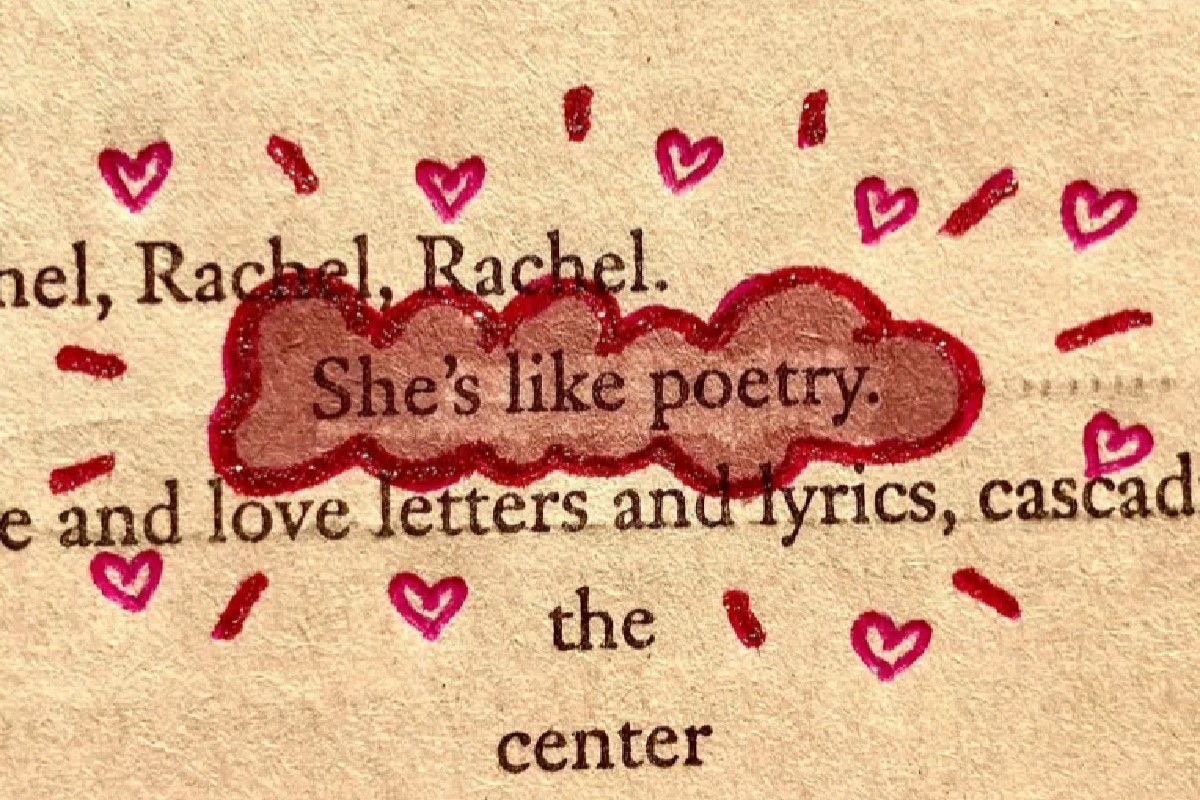 nel, Rachel, Rachel.
She's like poetry.
e and love letters and lyrics, cascad
the
center